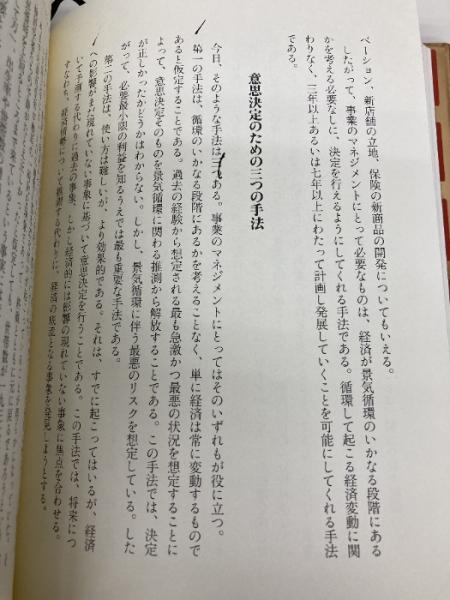 ベーション、新店舗の立地、保険の新商品の開発についてもいえる。
したがって、事業のマネジメントにとって必要なものは、経済が景気循環のいかなる段階にある
かを考える必要なしに、決定を行えるようにしてくれる手法である。循環して起こる経済変動に関
わりなく、三年以上あるいは七年以上にわたって計画し発展していくことを可能にしてくれる手法
である。
意思決定のための三つの手法
今日、そのような手法は三つある。事業のマネジメントにとってはそのいずれもが役に立つ。
第一の手法は、循環のいかなる段階にあるかを考えることなく、単に経済は常に変動するもので
あると仮定することである。過去の経験から想定される最も急激かつ最悪の状況を想定することに
よって、意思決定そのものを景気循環に関わる推測から解放することである。この手法では、決定
が正しかったかどうかはわからない。しかし、景気循環に伴う最悪のリスクを想定している。した
がって、必要最小限の利益を知るうえでは最も重要な手法である。
第二の手法は、使い方は難しいが、より効果的である。それは、すでに起こってはいるが、経済
への影響がまだ現れていない事象に基づいて意思決定を行うことである。この手法では、将来につ
いて予測する代わりに過去の事象、しかも経済的には影響の現れていない事象に焦点を合わせる。
すなわち、経済情勢について推測する代わりに、経済の底流となる事象を発見しようとする。